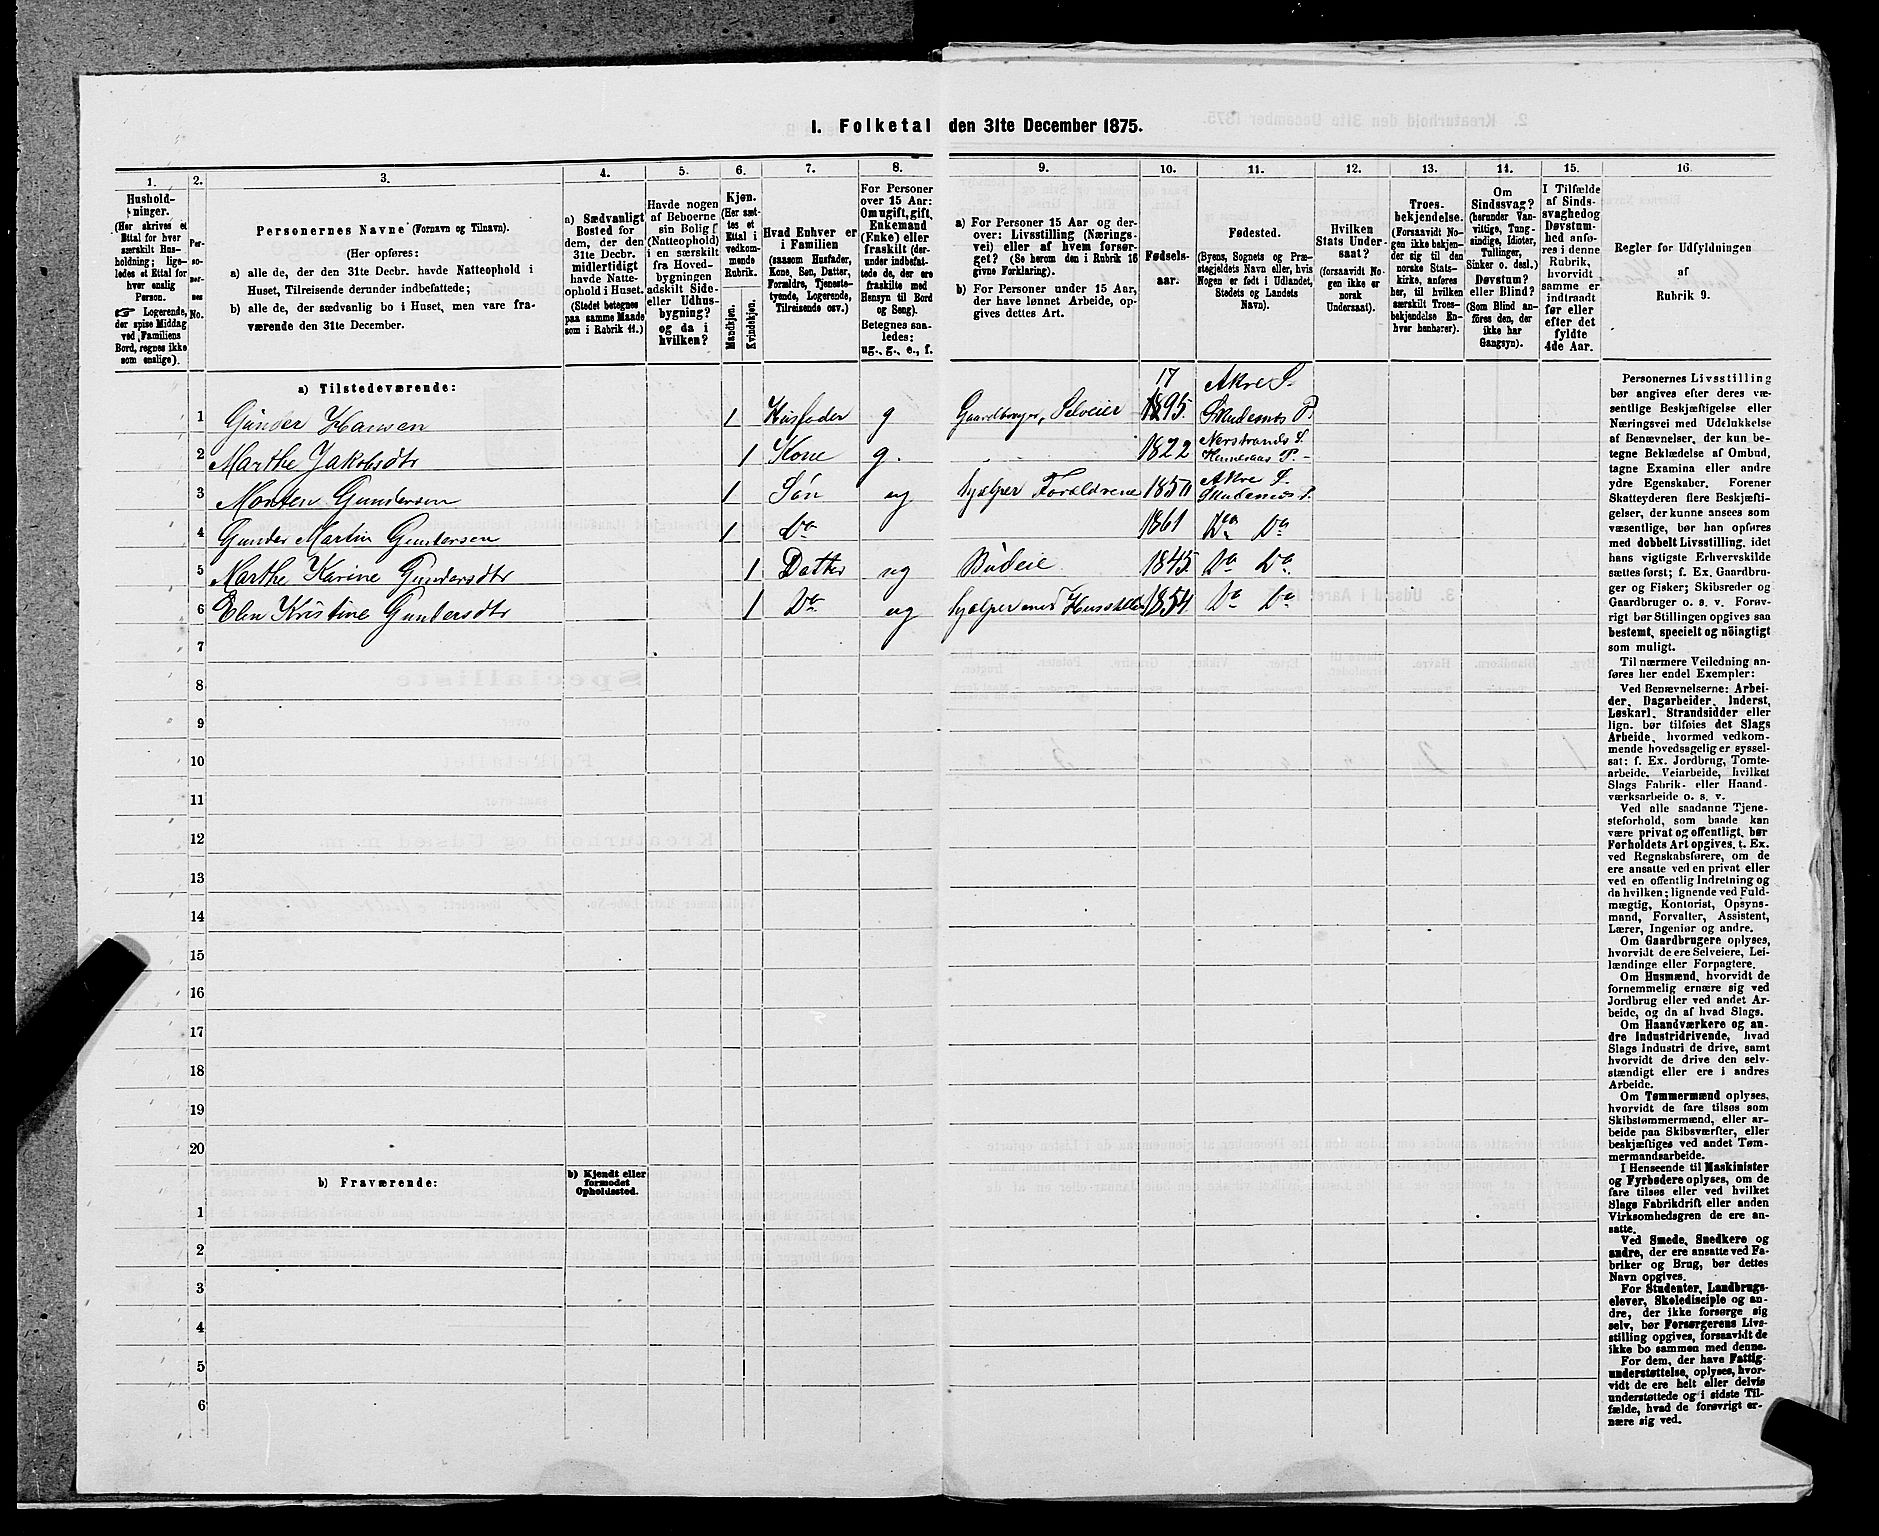 I. Folketal den 31te December 1875.
1. 2. 3. 4. 5. 6. 7. 8. 9. 10. 11. 12. 13. 14. 15. 16.
Hushold-
ninger.
(Her skrives et
Ettal for hver
særskilt Hus-
holdning; lige-
ledes et Ettal for
hver enslig
Person.
☞ Logerende,
der spise Middag
ved Familiens
Bord, regnes ikke
som enslige).
Per-
so-
ner-
nes
No.
Personernes Navne (Fornavn og Tilnavn).
(Her opføres:
a) alle de, der den 31te Decbr. havde Natteophold i
Huset, Tilreisende derunder indbefattede;
b) alle de, der sædvanlig bo i Huset, men vare fra-
værende den 31te December.
a) Sædvanligt
Bosted for
dem, der den
31te Decbr.
midlertidigt
havde Natte-
ophold i Huset.
(Stedet betegnes
paa samme Maade
som i Rubrik 11.)
Havde nogen
af Beboerne
sin Bolig
(Natteophold)
i en særskilt
fra Hoved-
bygningen
adskilt Side-
eller Udhus-
bygning?
og da i
hvilken?
Kjøn.
(Her sæt-
tes et
Ettal i
vedkom-
mende
Rubrik.
Mandkjøn.
Kvindekjøn.
Hvad Enhver er
i Familien
(saasom Husfader,
Kone, Søn, Datter,
Forældre, Tjeneste-
tyende, Logerende,
Tilreisende osv.)
For Personer
over 15 Aar:
Om ugift, gift,
Enkemand
(Enke) eller
fraskilt (der-
under indbefat-
tede de, der ere
fraskilte med
Hensyn til Bord
og Seng).
Betegnes saa-
ledes:
ug., g., e., f.
a) For Personer 15 Aar og der-
over: Livsstilling (Nærings-
vei) eller af hvem forsør-
get? (Se herom den i Rubrik 16
givne Forklaring).
b) For Personer under 15 Aar,
der have lønnet Arbeide, op-
gives dettes Art.
Fødsels-
aar.
Fødested.
(Byens, Sognets og Præ-
stegjeldets Navn eller, hvis
Nogen er født i Udlandet,
Stedets og Landets
Navn).
Hvilken
Stats Under-
saat?
(forsaavidt No-
gen ikke er
norsk
Undersaat).
Troes-
bekjendelse.
(Forsaavidt No-
gen ikke bekjen-
der sig til den
norske Stats-
kirke, anføres
her, til hvilken
særskilt Troes-
bekjendelse En-
hver henhører).
Om
Sindssvag?
(herunder Van-
vittige, Tung-
sindige, Idioter,
Tullinger,
Sinker o. desl.)
Døvstum?
eller Blind?
(Som Blind an-
føres den, der
ikke har
Gangsyn).
I Tilfælde
af Sinds-
svaghed og
Døvstum-
hed anfø-
res i denne
Rubrik,
hvorvidt
samme er
indtraadt
før eller
efter det
fyldte
4de Aar.
Regler for Udfyldningen
af
Rubrik 9.
a) Tilstedeværende:
17 Akre S.
1 Gunder Hansen 1 Husfader g Gaardbruger, Selveier 1895. Skudesnes P.
2 Marthe Jakobsdtr 1 Kone g. 1822 Nerstrands S. P.
3 Gundersen 1 Søn ug hjælper Forældrene 1850 Akre S. Skudesnes P.
4 Gunder Martin Gundersen 1 Do 1861 Do Do
5 Marthe Karine Gundersdtr 1 Datter ug Budeie 1845 Do Do
6 Elen Kristine Gundersdtr 1 Do ug hjælper med 1854 Do Do
7
8
9
10
11
12
13
14
15
16
17
18
19
20
b) Fraværende:
b) Kjendt eller
formodet
Opholdssted.
1
2
3
4
5
6
Personernes Livsstilling
bør angives efter deres væ-
sentlige Beskjæftigelse eller
Næringsvei med Udelukkelse
af Benævnelser, der kun be-
tegne Beklædelse af Ombud,
tagne Examina eller andre
ydre Egenskaber. Forener
Skatteyderen flere Beskjæfti-
gelser, der kunne ansees som
væsentlige, bør han opføres
med dobbelt Livsstilling, idet
hans vigtigste Erhvervskilde
sættes først; f. Ex. Gaardbru-
ger og Fisker; Skibsreder og
Gaardbruger o. s. v. Forøv-
rigt bør Stillingen opgives saa
bestemt, specielt og nöiagtigt
som muligt.
Til nærmere Veiledning an-
føres her endel Exempler:
Ved Benævnelserne: Arbei-
der, Dagarbeider, Inderst,
Løskarl, Strandsidder eller
lign. bør tilføies det Slags
Arbeide, hvormed vedkom-
mende hovedsagelig er syssel-
sat: f. Ex. Jordbrug, Tomte-
arbeide, Veiarbeide, hvilket
Slags Fabrik- eller Haand-
værksarbeide o. s. v.
Ved alle saadanne Tjene-
steforhold, som baade kan
være privat og offentligt, bør
Forholdets Art opgives, t. Ex.
ved Regnskabsførere, om de
ere ansatte ved en privat eller
ved en offentlig Indretning og
da hvilken; lignende ved Fuld-
mægtig, Kontorist, Opsyns-
mand, Forvalter, Assistent,
Lærer, Ingeniør og andre.
Om Gaardbrugere oplyses,
hvorvidt de ere Selveiere, Lei-
lændinge eller Forpagtere.
Om Husmænd, hvorvidt de
fornemmelig ernære sig ved
Jordbrug eller ved andet Ar-
beide, og da af hvad Slags.
Om Haandværkere og an-
dre Industridrivende, hvad
Slags Industri de drive, samt
hvorvidt de drive den selv-
stændigt eller ere i andres
Arbeide.
Om Tømmermænd oplyses,
hvorvidt de fare tilsøs som
Skibstømmermænd, eller ar-
beide paa Skibsværfter, eller
beskjæftiges ved andet Tøm-
mermandsarbeide.
I Henseende til Maskinister
og Fyrbødere oplyses, om de
fare tilsøs eller ved hvilket
Slags Fabrikdrift eller anden
Virksomhedsgren de ere an-
satte.
Ved Smede, Snedkere og
andre, der ere ansatte ved Fa-
briker og Brug, bør dettes
Navn opgives.
For Studenter, Landbrugs-
elever, Skoledisciple og an-
dre, der ikke forsørge sig
selv, bør Forsørgerens Livs-
stilling opgives, forsaavidt de
ikke bo sammen med denne.
For dem, der have Fattig-
understøttelse, oplyses, hvor-
vidt de ere helt eller delvis
understøttede og i sidste Til-
fælde, hvad de forøvrigt er-
nære sig ved.